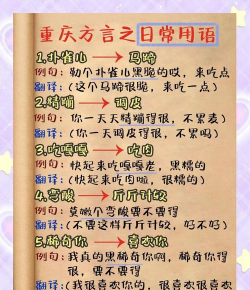 重庆方言之日常用语
1.扑雀儿→马蹄
例句：勒个扑雀儿黑脆的哎，来吃点
翻译：(这个马蹄很脆，来吃一点)
2.精蹦→调皮
例句：你一天天精蹦得很，不累麦)
翻译：(你一天调皮得很，不累吗)
3.吃嘎嘎→吃肉
例句：快起来吃嘎嘎老，黑糯的
翻译：(快起来吃肉啦，很糯的)
4.弯酸→斤斤计较
例句：莫嗽个弯酸要不要得
翻译：(不要这样斤斤计较，好不好)
5.稀奇你→喜欢你
例句：我真的黑稀奇你啊，稀奇你得
很，要不要得
翻译：(我很喜欢你的，很喜欢很喜欢